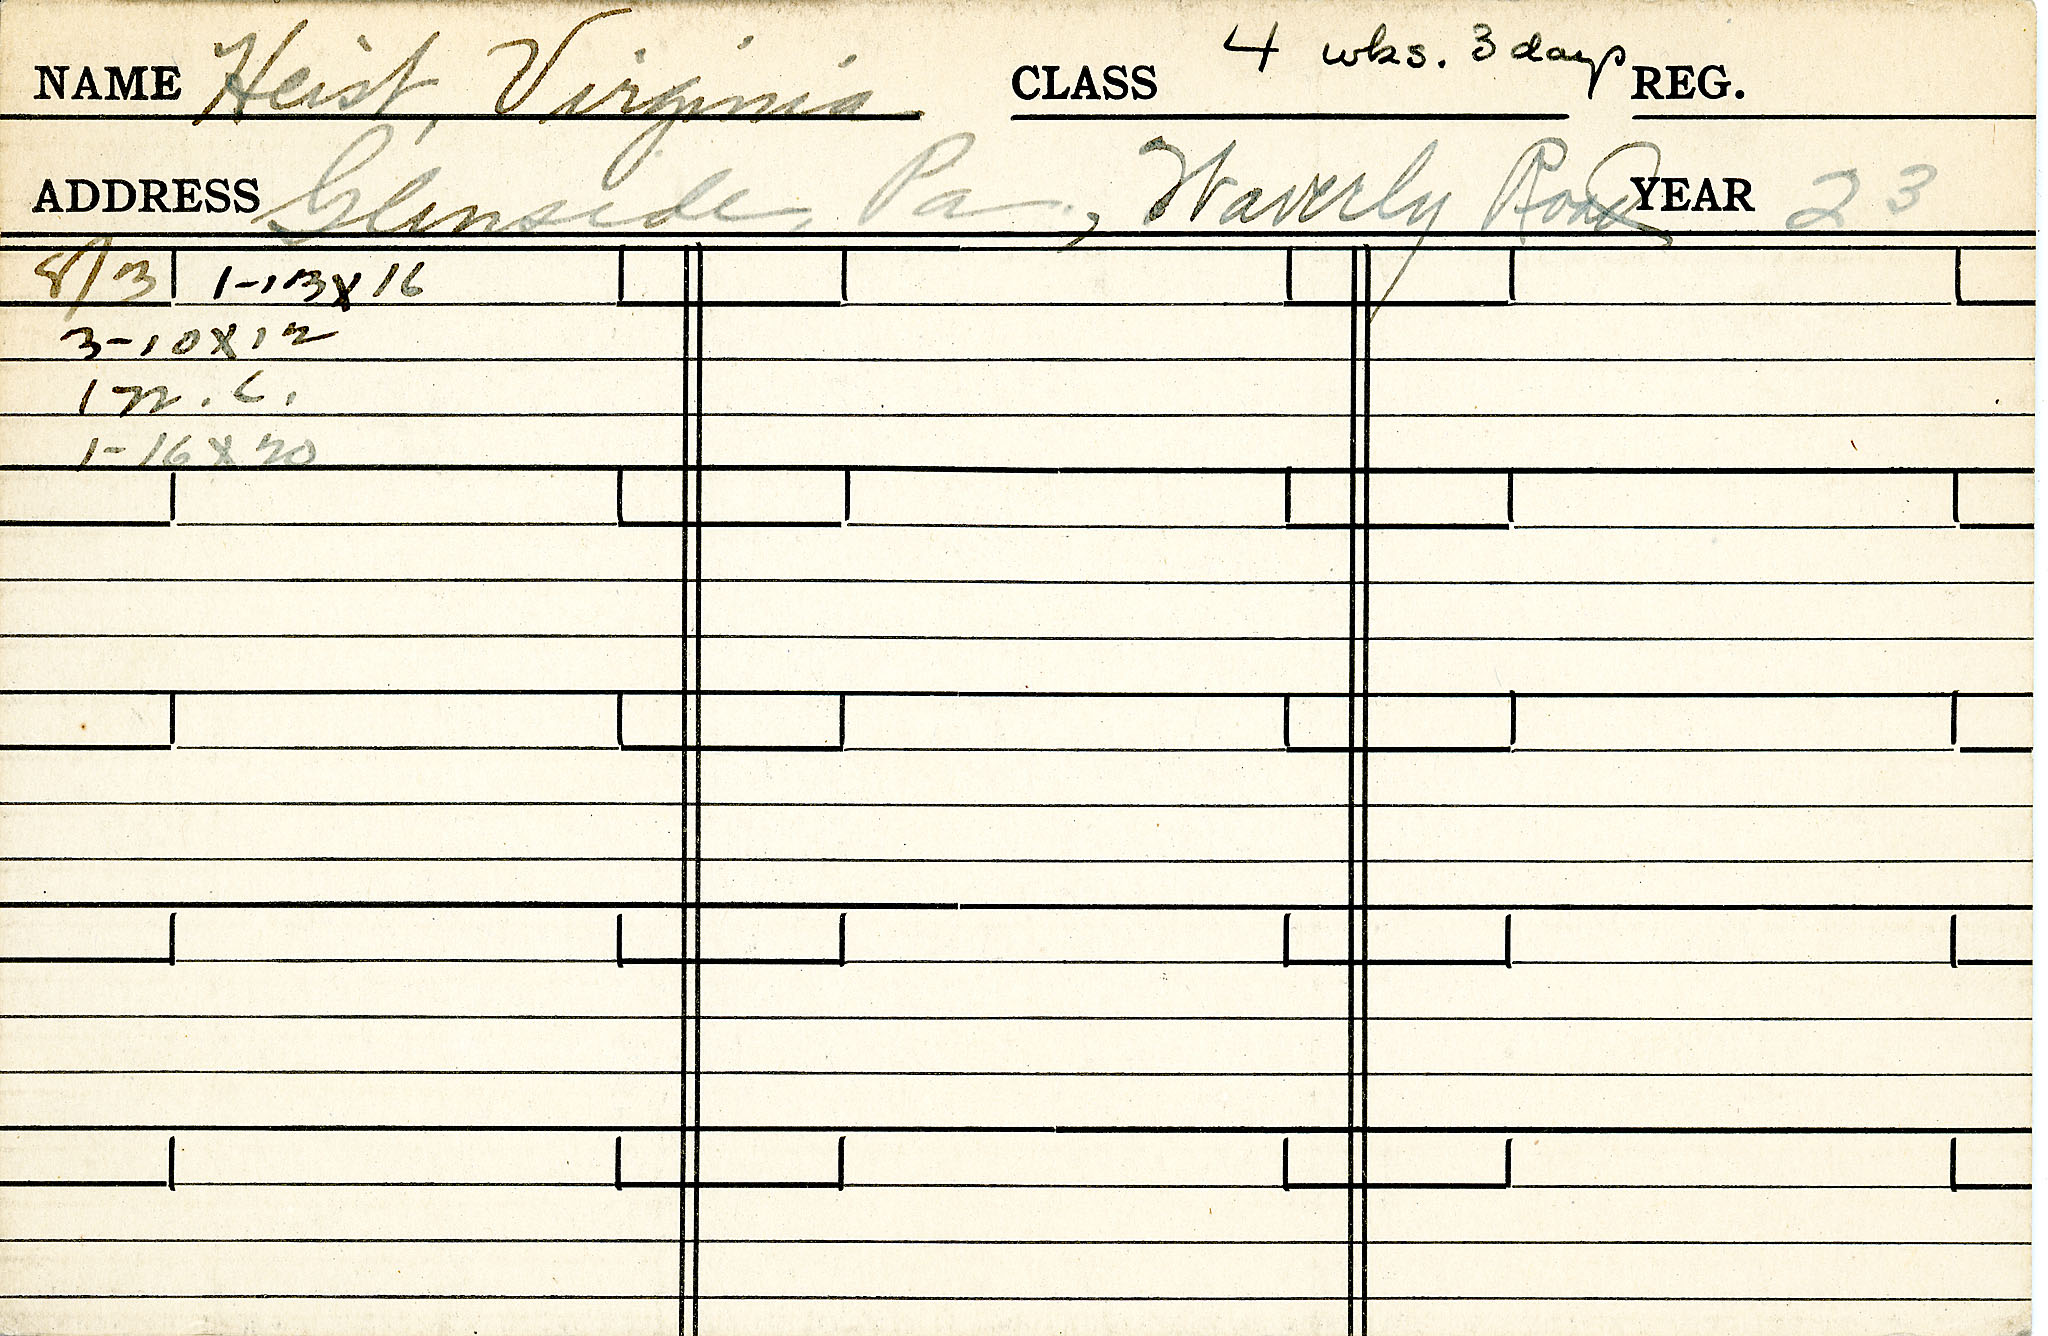 NAME Heist, Virginia CLASS 4 wks. 3 days REG.
ADDRESS Glenside, Pa., Waverly Road YEAR 23
8/3 1-13x16
3-10x12
1 n.c.
1-16x20